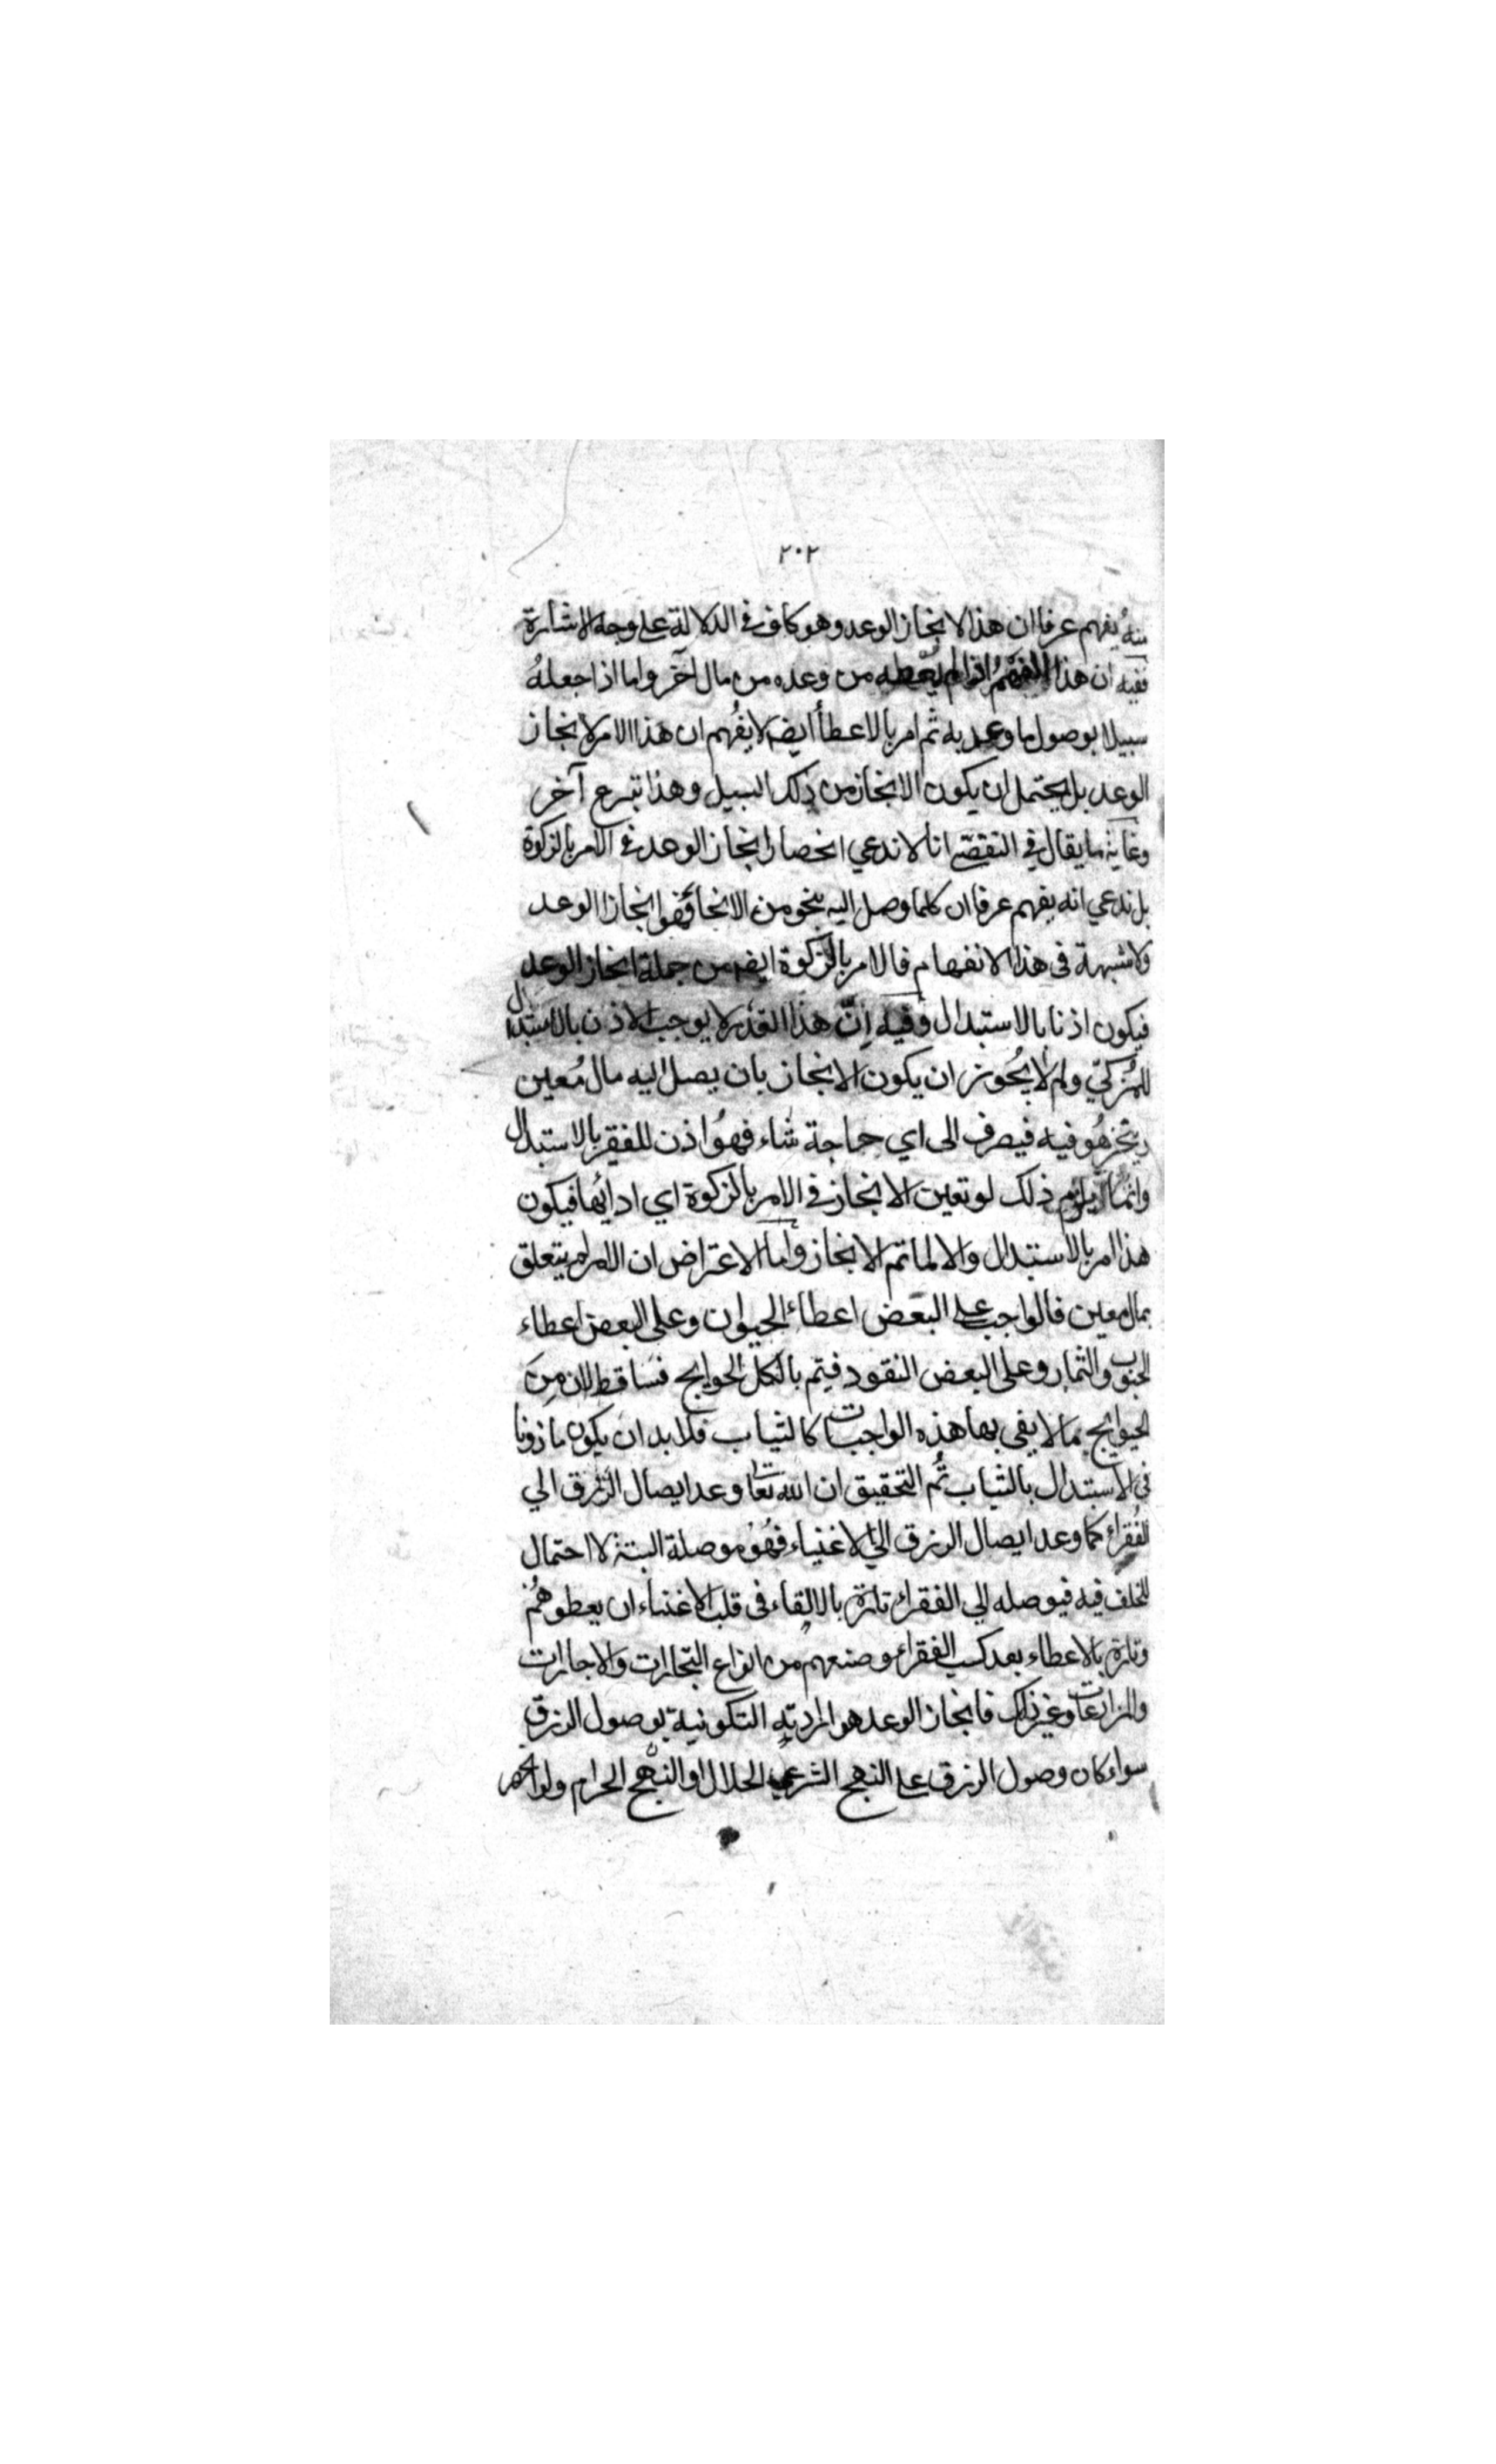 ٢٠٢
منهُ يفهم عرفا ان هذا لانجاز الوعد وهو كاف في الدلالة على وجه الاشارة
ففيه ان هذا الفهم اذا لم يعطه من وعده من مال آخر واما اذا جعلهُ
سبيلا بوصول ما وعد به ثم امر بالاعطأ ايضا لا يفُهم ان هذا الامر لانجاز
الوعد بل يحتمل ان يكون الانجاز من ذلك السبيل وهذا تبرع آخر
وغاية ما يقال في التفصّي انا لا ندعي انحصار انجاز الوعد في الامر بالزكوة
بل ندعي انه يفهم عرفا ان كلما وصل اليه بنحو من الانحا فهو انجاز الوعد
ولا شبهة في هذا الانفهام فالامر بالزكوة ايضا من جملة انجاز الوعد
فيكون اذنا بالاستبدال وفيه اِنّ هذا القدر لا يوجب الاذن بالاستبدال
للمُزكّي ولم لا يجُوز ان يكون الانجاز بان يصل اليه مال مُعين
هُو فيه فيصرف الى اي حاجة شاء فهوُ اذن للفقير بالاستبدال
وانما يلزم ذلك لو تعين الانجاز في الامر بالزكوة اي ادائها فيكون
هذا امر بالاستبدال والا لما تم الانجاز واما الاعتراض ان الامر لم يتعلق
بمال معين فالواجب على البعض اعطاء الحيوان وعلى البعض اعطاء
الحبوب والثمار وعلى البعض النقود فيتم بالكل الحوايج فساقط لان مِن
الحوايج مما لا يفى بها هذه الواجبات كالثياب فلا بد ان يكون ماذونا
فى الاستبدال بالثياب ثُم التحقيق ان الله تعا وعد ايصال الرزق الي
الفُقراء كما وعد ايصال الرزق الي الاغنياء فهُو موصلة البتة لا احتمال
للتخلف فيه فيوصله الي الفقراء تارة بالالقاء فى قلب الاغنياء ان يعطوهُم
وتارة بالاعطاء بعد كسب الفقراء وصنعهم من انواع التجارات والاجارات
والمزارعات وغير ذلك فانجاز الوعد هو التكونية بوصول الرزق
سواء كان وصول الرزق على النهج الشرعي الحلال او النهج الحرام ولو